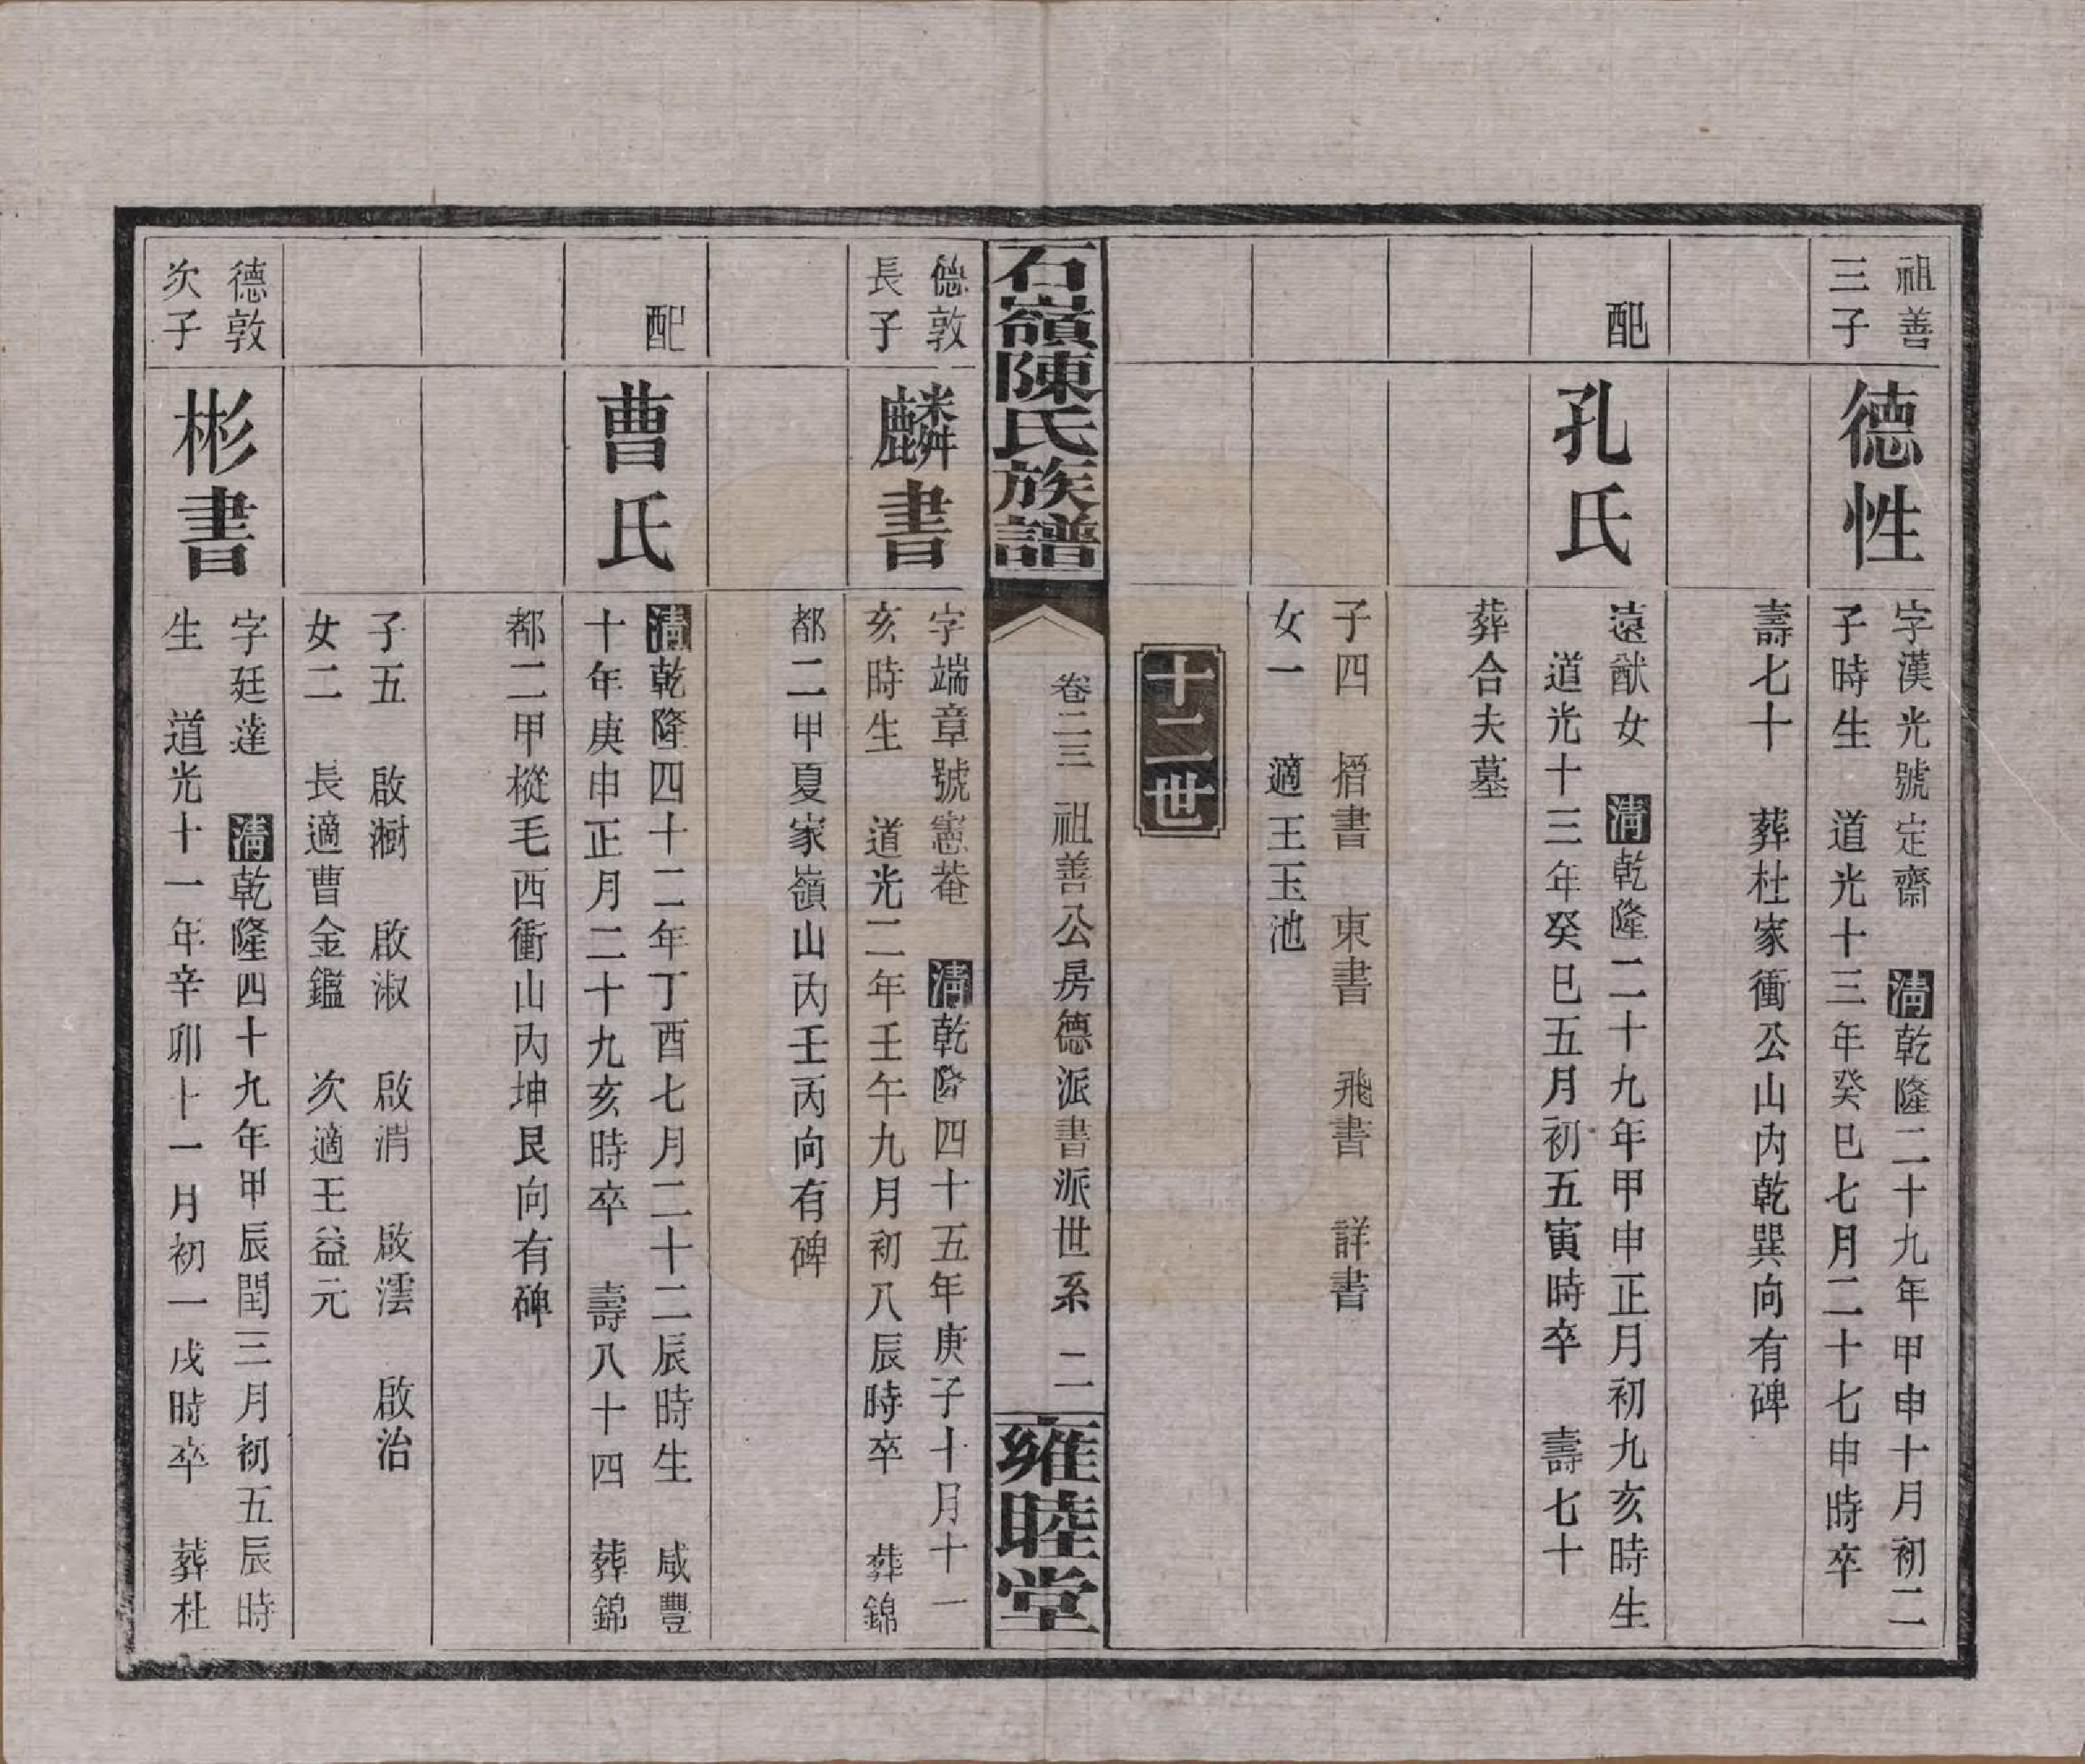 祖善
三子
德性
字漢光號定齋 清乾隆二十九年甲申十月初二
子時生 道光十三年癸巳七月二十七申時卒
壽七十 葬杜家衝公山內乾巽向有碑
配
孔氏
遠猷女 清乾隆二十九年甲申正月初九亥時生
道光十三年癸巳五月初五寅時卒 壽七十
葬合夫墓
子四 搢書 東書 飛書 詳書
女一 適王玉池
十二世
石嶺陳氏族譜
卷二三 祖善公房德派書派世系 二
雍睦堂
德敦
長子
麟書
字端章號憲菴 清乾隆四十五年庚子十月十一
亥時生 道光二年壬午九月初八辰時卒 葬錦
都二甲夏家嶺山內壬丙向有碑
配
曹氏
清乾隆四十二年丁酉七月二十二辰時生 咸豐
十年庚申正月二十九亥時卒 壽八十四 葬錦
都二甲樅毛西衝山內坤艮向有碑
子五 啟澍 啟淑 啟渭 啟澐 啟治
女二 長適曹金鑑 次適王益元
德敦
次子
彬書
字廷達 清乾隆四十九年甲辰閏三月初五辰時
生 道光十一年辛卯十一月初一戌時卒 葬杜